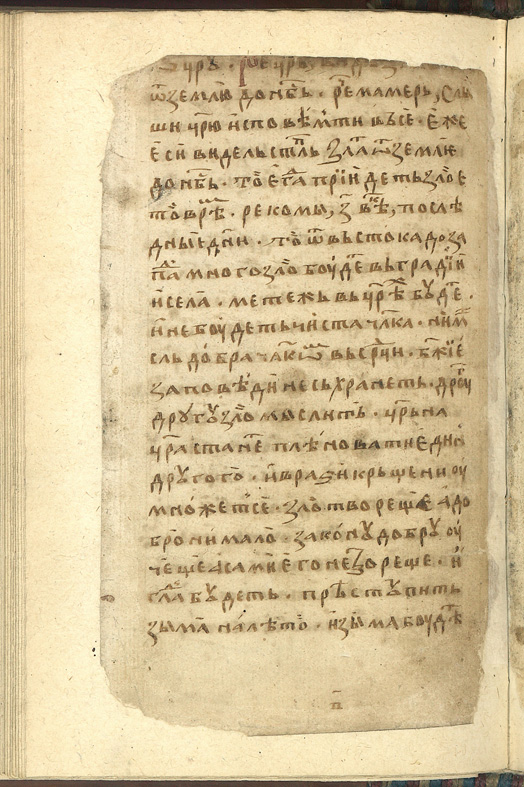 ѿземлѥ донб҃ь · р҃е мамерь, слы
ши цр҃ю исповѣмти въсе · ѥже
ѥси видель стлⷫ҇ь злаⷮ ѿземлѥ
донб҃ь · то ѥгⷣа прїидеть злоѥ
то врⷨѣ · рекомы, з҃ вⷦѣ, послѣ
дныѥ дни · то ѿ въстока до за
паⷣ много зло боудеⷮ въ градїи
и села · метежь въ цр҃ѣⷯ будеⷮ ·
и не боудеть чиста чл҃ка · ни мⷭ҇и
сль добра чл҃кѿⷨ въ срⷣци · бж҃їѥ
заповѣди не сьхранеть · дрꙋгь
дрꙋгꙋ зло мыслить · цр҃ь на
цр҃а стане плѣновати ѥдинь
дрꙋгого · и врази крьщени оу
множетсе · зло твореще а до
бро ни мало · законꙋ добрꙋ оу
чеще а сами ѥго не твореще · и
слаⷡ бꙋдеть · прѣстꙋпить
зыма на лѣто · и зыма боудеⷮ
п҃